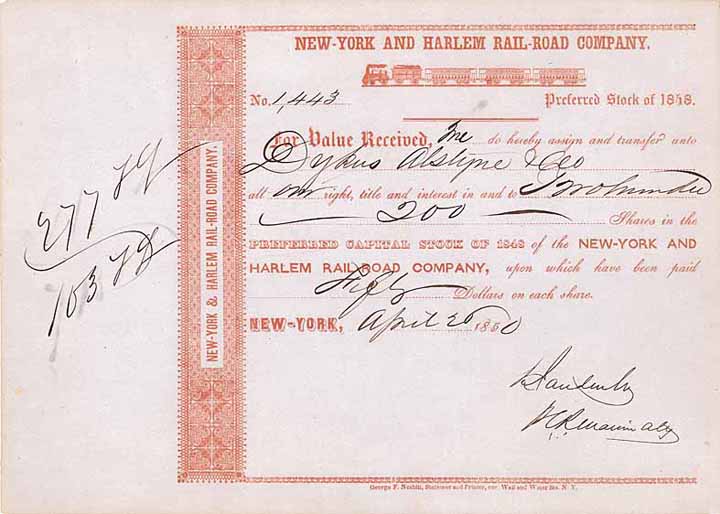 NEW-YORK AND HARLEM RAIL-ROAD COMPANY.
No. 1,443 Preferred Stock of 1848.
For Value Received, We do hereby assign and transfer unto
Dykers Alstyne & Co
all our right, title and interest in and to Two hundred
200 Shares in the
PREFERRED CAPITAL STOCK OF 1848 of the NEW-YORK AND
HARLEM RAIL-ROAD COMPANY, upon which have been paid
Fifty Dollars on each share.
NEW-YORK, April 26 1850
NEW-YORK & HARLEM RAIL-ROAD COMPANY.
277
103
George F. Nesbitt, Stationer and Printer, cor. Wall and Water Sts. N. Y.